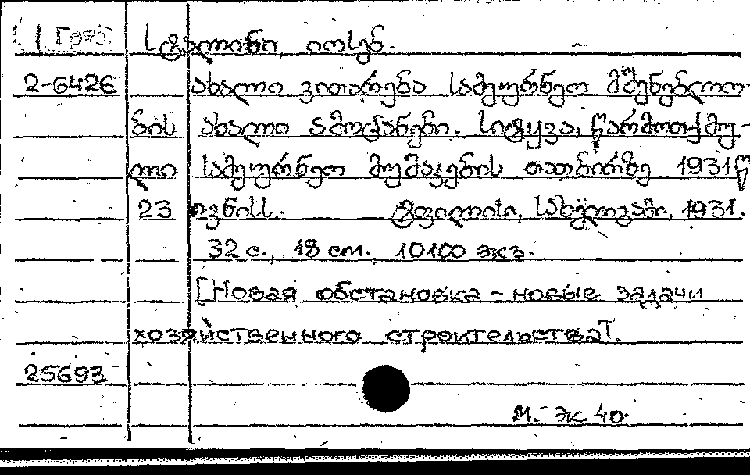 სტალინი, იოსებ.
2-6426 ახალი ვითარება სამეურნეო მშენებლო-
ბის ახალი ამოცანები. სიტყვა, წარმოთქმუ-
ლი სამეურნეო მუშაკების თათბირზე 1931წ
23 ივნისს. ტფილისი, სახელგამი, 1931.
32 с., 18 см., 10100 экз.
[Новая обстановка - новые задачи
хозяйственного строительства].
25693
М.- эк 40.